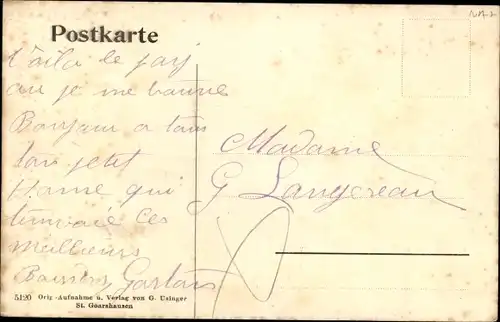 Postkarte
Voilà le pay
au je me trouve
Bonjour a tous
ton petit
Home qui
tenvoie ces
meilleurs
Baisers Gaston
Madame
G Langereau
5120 Orig.-Aufnahme u. Verlag von G. Usinger
St. Goarshausen